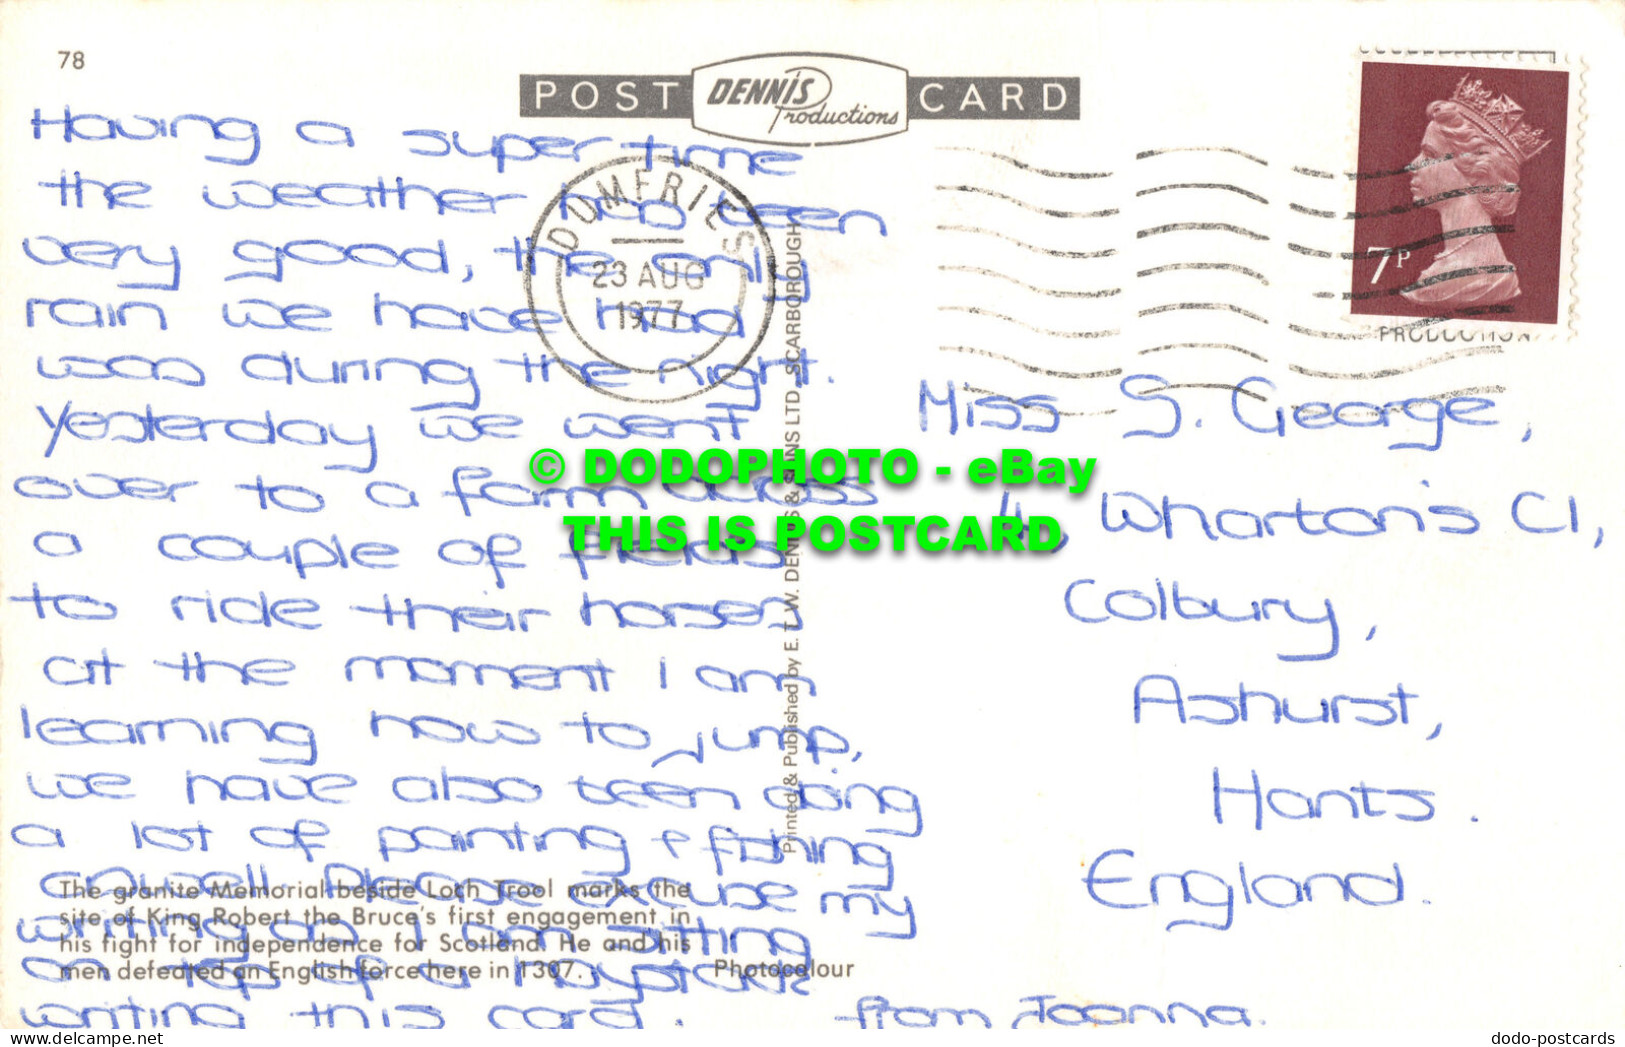 78
POST DENNIS Productions CARD
Having a super time
the weather has been
very good, the only
rain we have had
was during the night.
Yesterday we went
over to a farm across
a couple of fields
to ride their horses
at the moment I am
learning how to jump,
we have also been doing
a lot of painting & fishing
aswell. Please excuse my
writing as I am sitting
on top of a haystack
writing this card.
from Joanna.
DUMFRIES
23 AUG
1977
7P
Miss S. George,
4, Wharton's Cl,
Colbury,
Ashurst,
Hants.
England.
Printed & Published by E. T. W. DENNIS & SONS LTD., SCARBOROUGH
The granite Memorial beside Loch Trool marks the
site of King Robert the Bruce's first engagement in
his fight for independence for Scotland. He and his
men defeated an English force here in 1307.
Photocolour
© DODOPHOTO - eBay
THIS IS POSTCARD
dodo-postcards